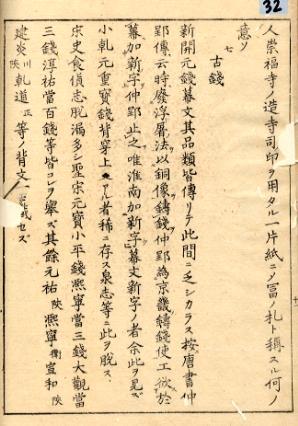 32
人崇福寺ノ造寺司印ヲ用タル一片紙ニメ冨ノ札ト稱スル何ノ
意ソ
七 古錢
新開元錢幕文其品類皆傳リテ此間ニ乏シカラス按唐書仲
郢傳云時廢浮屠法以銅像鑄錢仲郢為京畿鑄錢使工欲於
幕加新字仲郢止之唯淮南加新字幕文新字ノ者余此ヲ見ズ
小軋元重寳錢背穿上 アル者稀ニ存ス泉志等ニ此ヲ脱ス
宋史食貨志脱漏多シ聖宋元寳小平錢熈寧當三錢大觀當
三錢淳祐當百錢等皆コレヲ舉ズ其餘元祐陝熈寧衡宣和陝
建炎川陝軋道正等ノ背文一モ載セズ